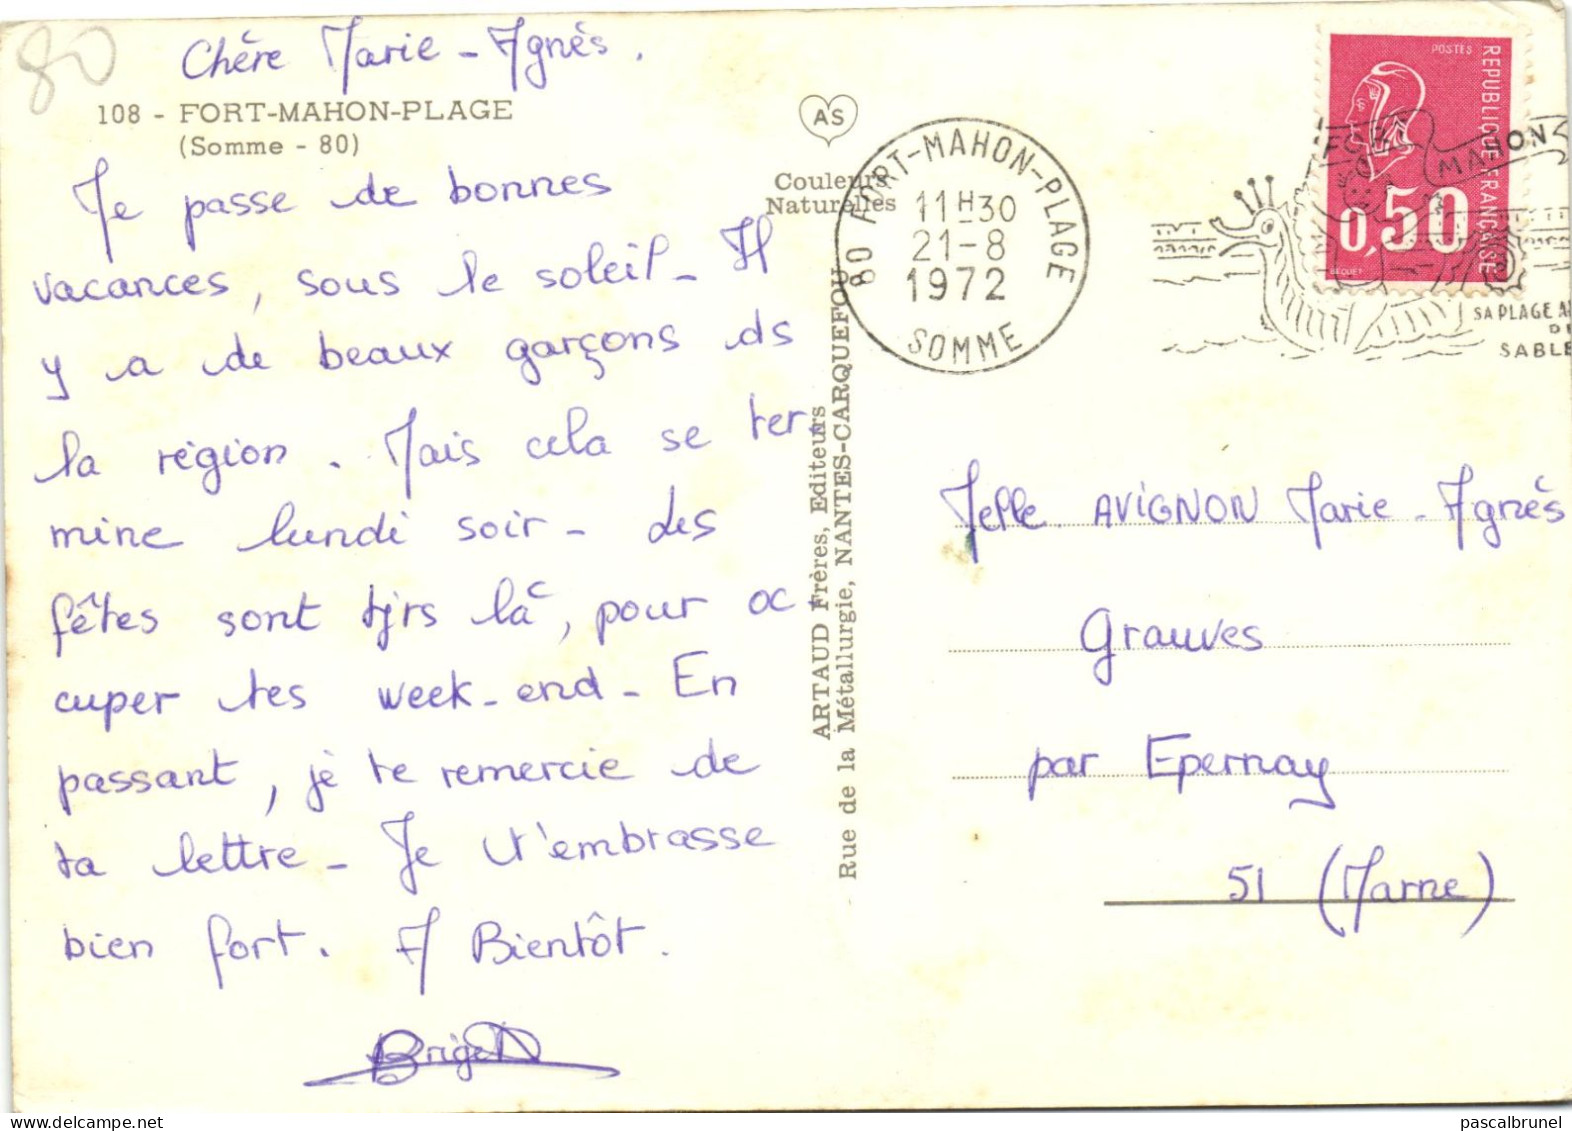 80
Chère Marie-Agnès.
108 - FORT-MAHON-PLAGE
(Somme - 80)
Je passe de bonnes
vacances, sous le soleil - Il
y a de beaux garçons ds
la région. Mais cela se ter-
mine lundi soir - des
fêtes sont tjrs là, pour oc-
cuper tes week-end - En
passant, je te remercie de
ta lettre - Je t'embrasse
bien fort. A Bientôt.
AS
Couleurs
Naturelles
ARTAUD Frères, Editeurs
Rue de la Métallurgie, NANTES-CARQUEFOU
80 FORT-MAHON-PLAGE
11H30
21-8
1972
SOMME
POSTES
REPUBLIQUE FRANÇAISE
0,50
BEQUET
FORT MAHON
SA PLAGE
SABLE
Melle AVIGNON Marie-Agnès
Grauves
par Epernay
51 (Marne)
pascalbrunel